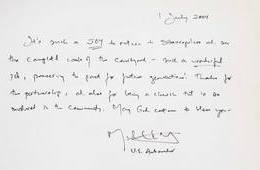 1 July 2004
It's such a JOY to return to and see
the complete work of the courtyard - such a wonderful
job, preserving the past for future generations! Thanks for
the partnership, also for being a church that is so
involved in the community. May God continue to bless you -
U.S. Ambassador